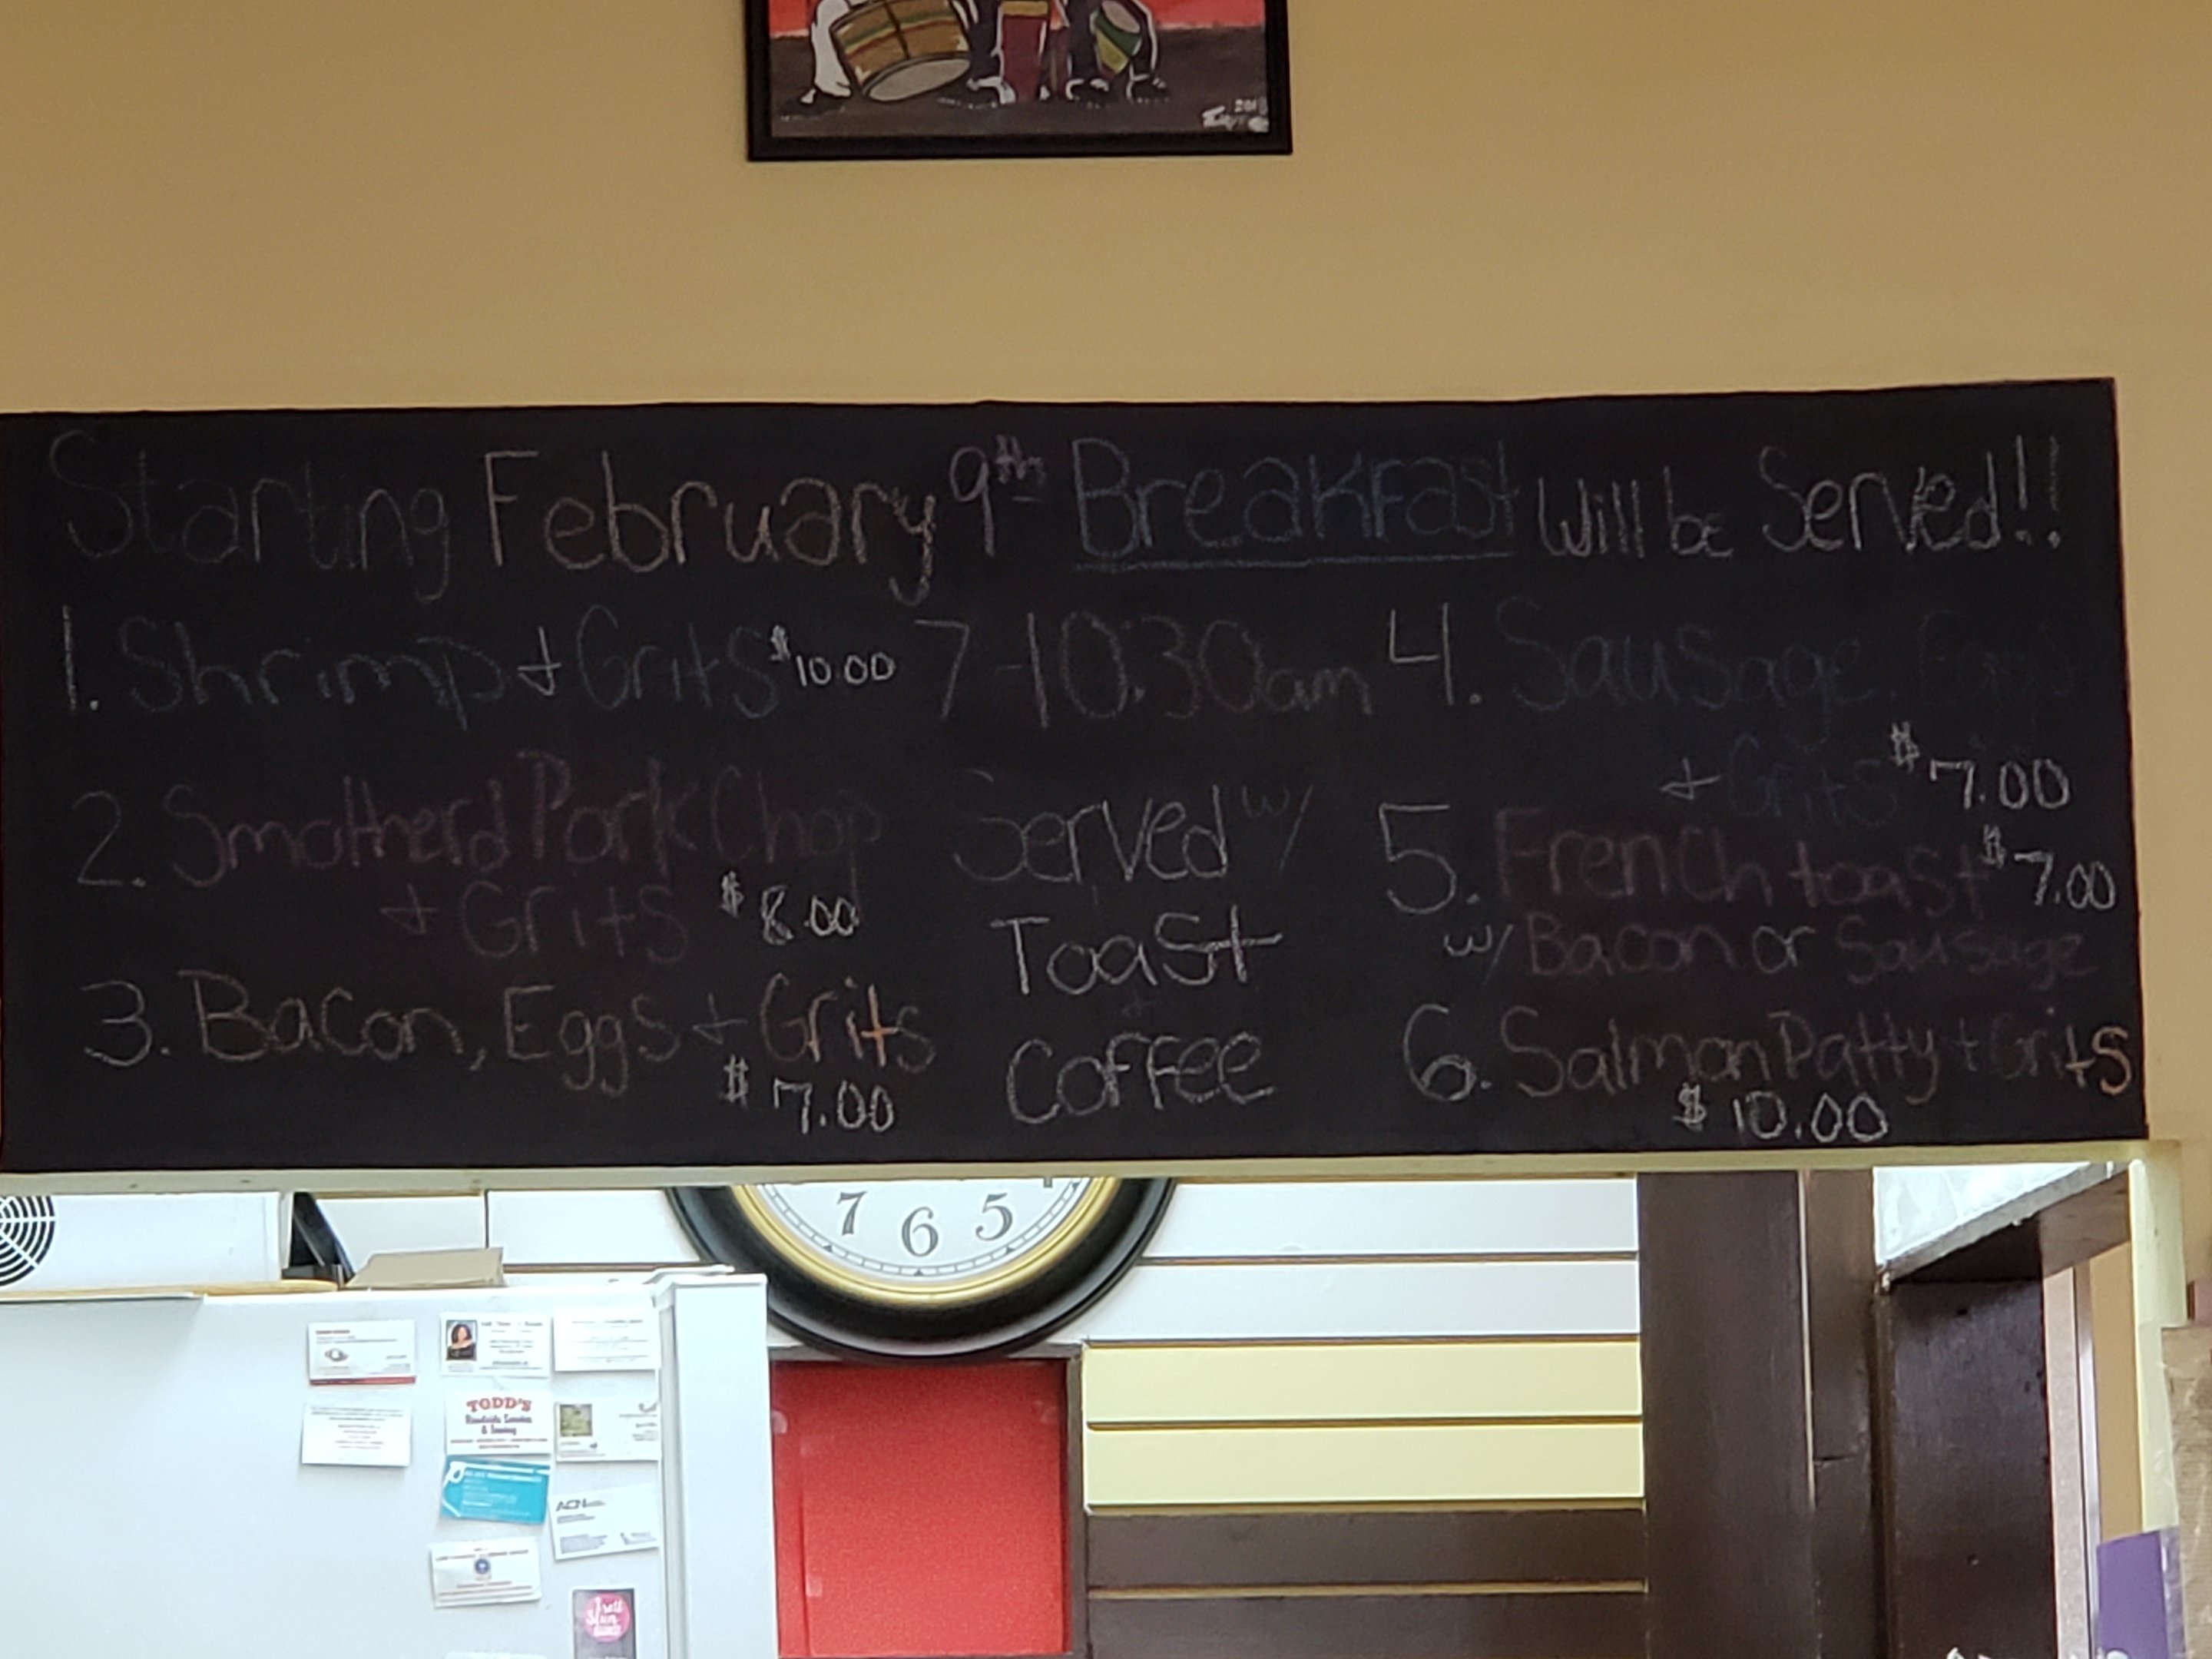 2018
Starting February 9th Breakfast Will be Served!!
1. Shrimp + Grits $10.00
2. Smotherd Pork Chop
+ Grits $8.00
3. Bacon, Eggs + Grits
$7.00
7-10:30am
Served w/
Toast
+
Coffee
4. Sausage, Eggs
+ Grits $7.00
5. French toast $7.00
w/ Bacon or Sausage
6. Salmon Patty + Grits
$10.00
7 6 5
TODD'S
Roadside Service
& Towing
ACN